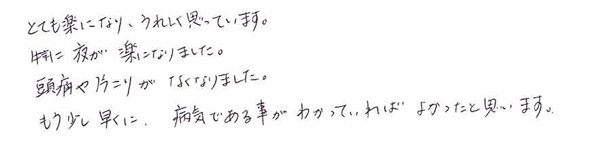 とても楽になり、うれしく思っています。
特に 夜が 楽になりました。
頭痛や肩こりが なくなりました。
もう少し早くに、病気である事が わかっていれば よかったと思います。